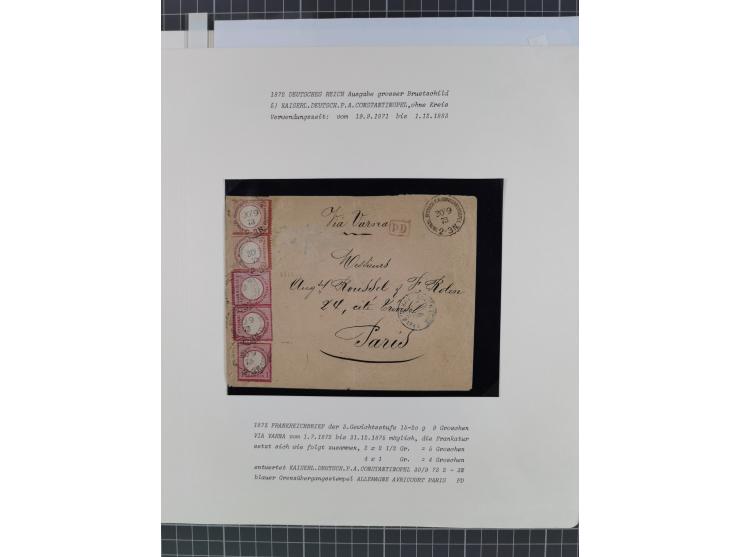 1872 DEUTSCHES REICH Ausgabe grosser Brustschild
5) KAISERL.DEUTSCH.P.A.CONSTANTINOPEL,ohne Kreis
Verwendungszeit: vom 19.9.1871 bis 1.12.1882
30/9
73
Via Varna
PD
30/9
73
2-3N.
Messieurs
Augst Roussel & F.
24, cité
Paris
1872 FRANKREICHBRIEF der 2.Gewichtsstufe 15-20 g 9 Groschen
VIA VARNA vom 1.7.1872 bis 31.12.1875 möglich, die Frankatur
setzt sich wie folgt zusammen, 2 x 2 1/2 Gr. = 5 Groschen
4 x 1 Gr. = 4 Groschen
entwertet KAISERL.DEUTSCH.P.A.CONSTANTINOPEL 30/9 73 2 - 3N
blauer Grenzübergangsstempel ALLEMAGNE AVRICOURT PARIS PD